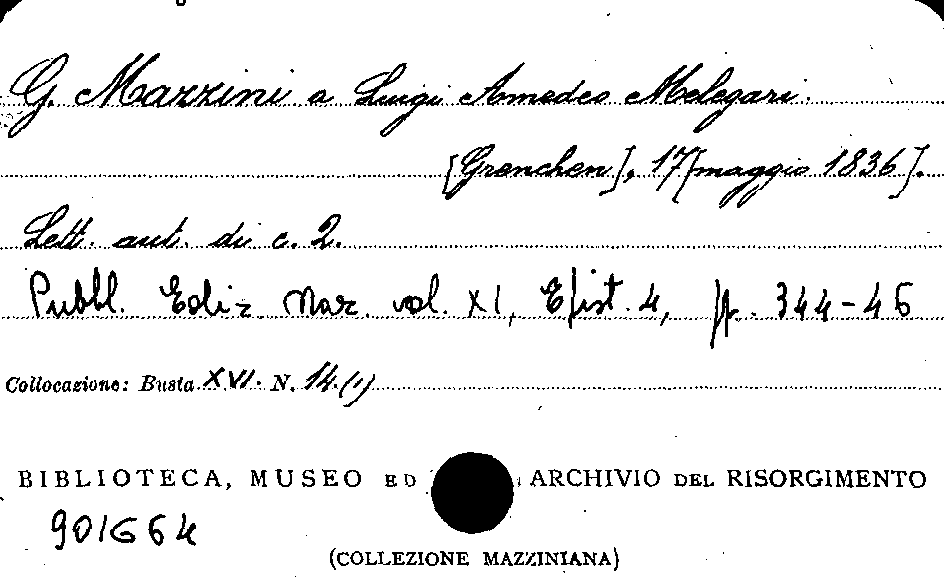 G. Mazzini a Luigi Amedeo Melegari.
[Grenchen], 17 [maggio 1836].
Lett. aut. di c. 2.
Pubbl. Ediz. Naz. vol. XI, Epist. 4, pp. 344-46
Collocazione: Busta XVI. N. 14.(1)
BIBLIOTECA, MUSEO ED ARCHIVIO DEL RISORGIMENTO
901664
(COLLEZIONE MAZZINIANA)